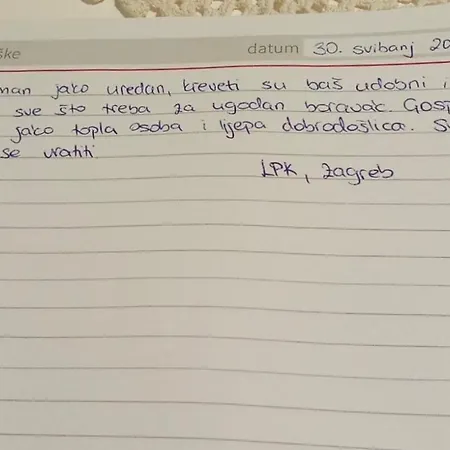 ške datum 30. svibanj 20
man jako uredan, kreveti su baš udobni i
sve što treba za ugodan boravak. Gosp
jako topla osoba i lijepa dobrodošlica. S
se vratiti.
LPK, Zagreb